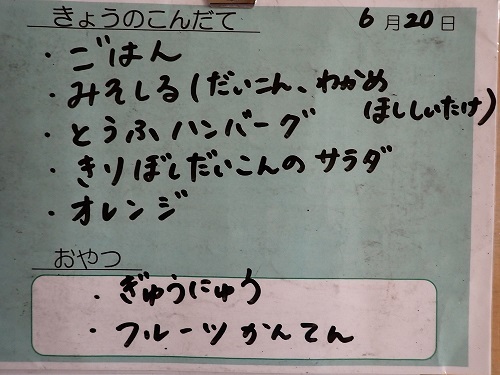 きょうのこんだて 6月20日
・ごはん
・みそしる(だいこん、わかめ
ほししいたけ)
・とうふハンバーグ
・きりぼしだいこんのサラダ
・オレンジ
おやつ
・ぎゅうにゅう
・フルーツかんてん